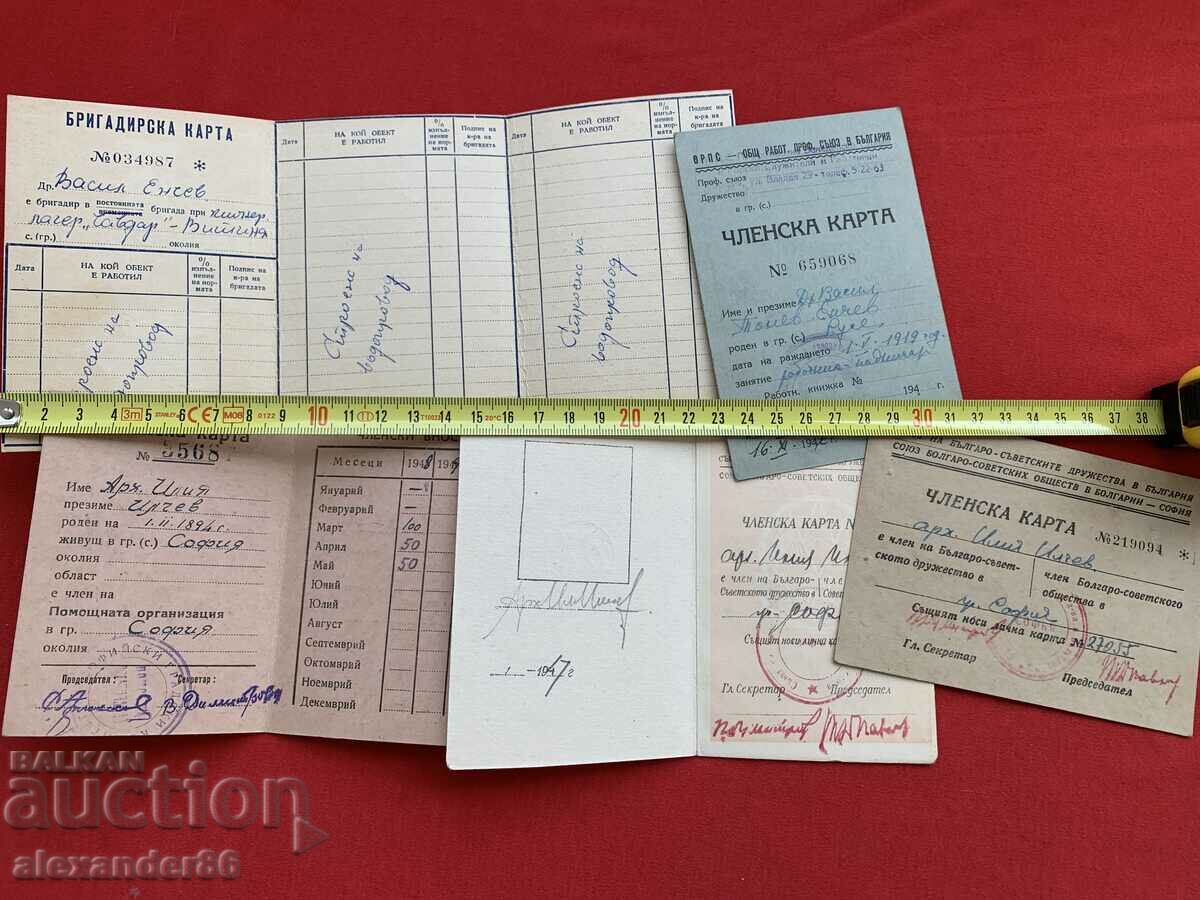 БРИГАДИРСКА КАРТА
№034987 *
Др. Васил Енчев
е бригадир в постоянната бригада при
лагер "Чавдар" -
с. (гр.) околия
Дата НА КОЙ ОБЕКТ Е РАБОТИЛ % изпълнение на нормата Подпис на к-ра на бригадата
водопровод
Дата НА КОЙ ОБЕКТ Е РАБОТИЛ % изпълнение на нормата Подпис на к-ра на бригадата
Строеж на
водопровод
НА КОЙ ОБЕКТ Е РАБОТИЛ % изпълнение на нормата Подпис на к-ра на бригадата
Строеж на
водопровод
ОРПС — ОБЩ РАБОТ. ПРОФ. СЪЮЗ В БЪЛГАРИЯ
Проф. съюз
Дружество
в гр. (с.)
ЧЛЕНСКА КАРТА
№ 659068
Име и презиме Др. Васил
Тонев Енчев
роден в гр. (с.) Русе
дата на раждането 1.V.1919 год
занятие
Работн. книжка № 194 г.
16.XI.194
2 3 3m 4 5 STANLEY 6 CE 7 МОВ 8 0122 9 10 11 12 13 14 15 20°C 16 17 18 19 20 21 22 23 24 25 26 27 28 29 30 31 32 33 34 35 36 37 38
карта
№ 5568
Име Арх. Илия
презиме Илчев
роден на 1.II.1894 г.
живущ в гр. (с.) София
околия
област
е член на
Помощната организация
в гр. София
околия
Председател: Секретар:
Месеци 1948 194
Януарий —
Февруарий —
Март 100
Април 50
Май 50
Юний
Юлий
Август
Септемврий
Октомврий
Ноемврий
Декемврий
1947 г
ЧЛЕНСКА КАРТА №
арх. Илия
е член на Българо-
Съветското дружество в
гр. Соф
Същият носи лична карта
Гл. Секретар Председател
НА БЪЛГАРО-СЪВЕТСКИТЕ ДРУЖЕСТВА В БЪЛГАРИЯ
СОЮЗ БОЛГАРО-СОВЕТСКИХ ОБЩЕСТВ В БОЛГАРИИ — СОФИЯ
ЧЛЕНСКА КАРТА №219094 *
арх. Илия Илчев
е член на Българо-съветското дружество в
член Болгаро-советского общества в
гр. София
Същият носи лична карта № 27055
Гл. Секретар
Председател
BALKAN
auction
alexander86